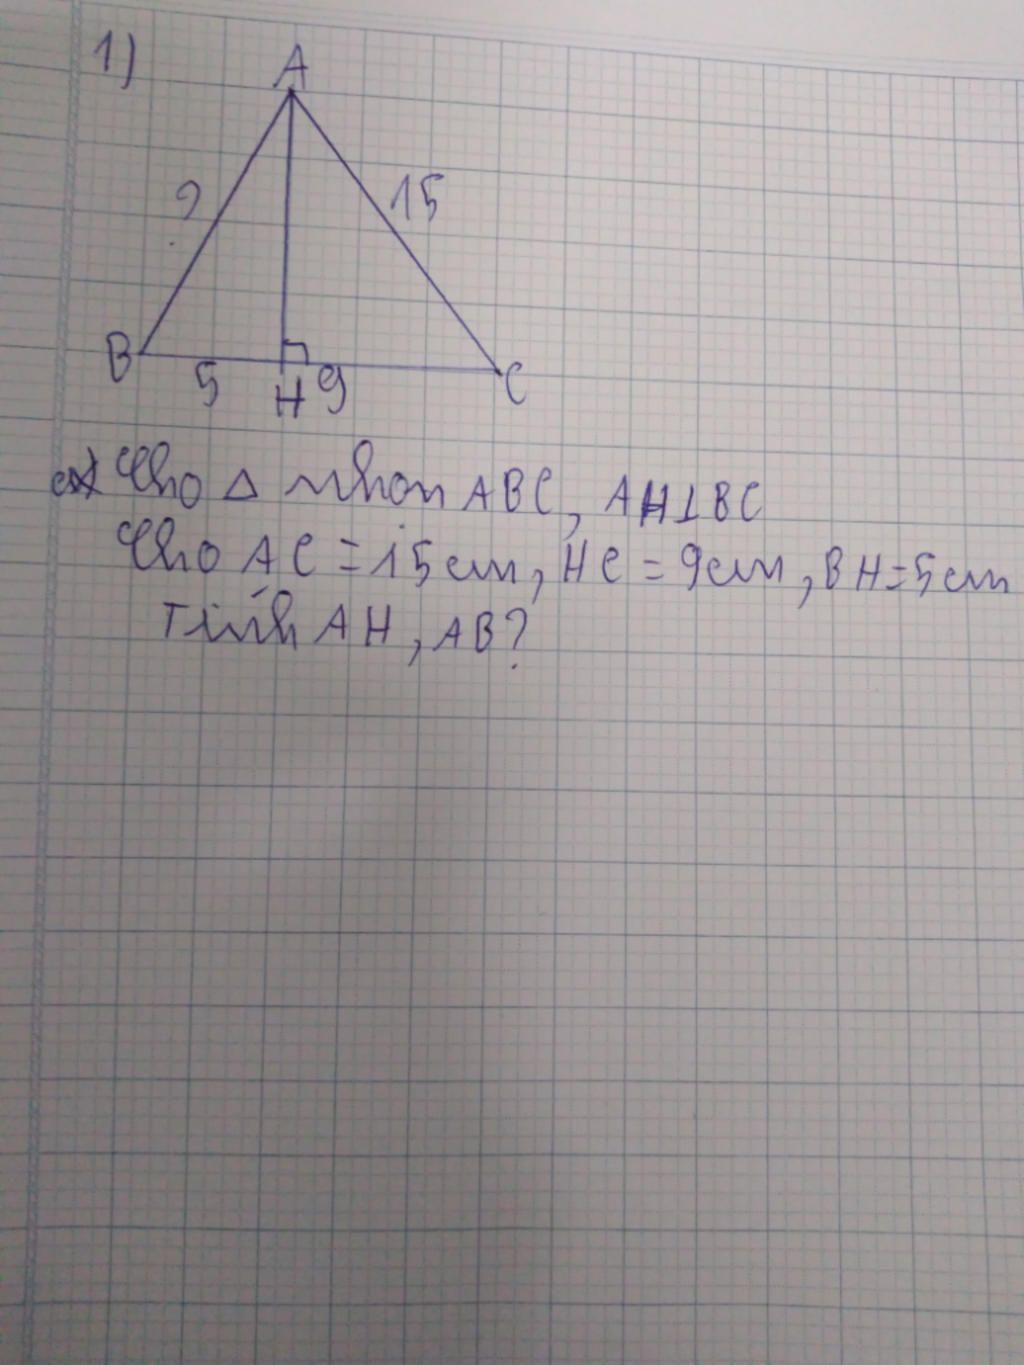 1)
A
? 15
B 5 H 9 C
Cho Δ nhọn ABC, AH⊥BC
Cho AC = 15cm, HC = 9cm, BH = 5cm
Tính AH, AB?